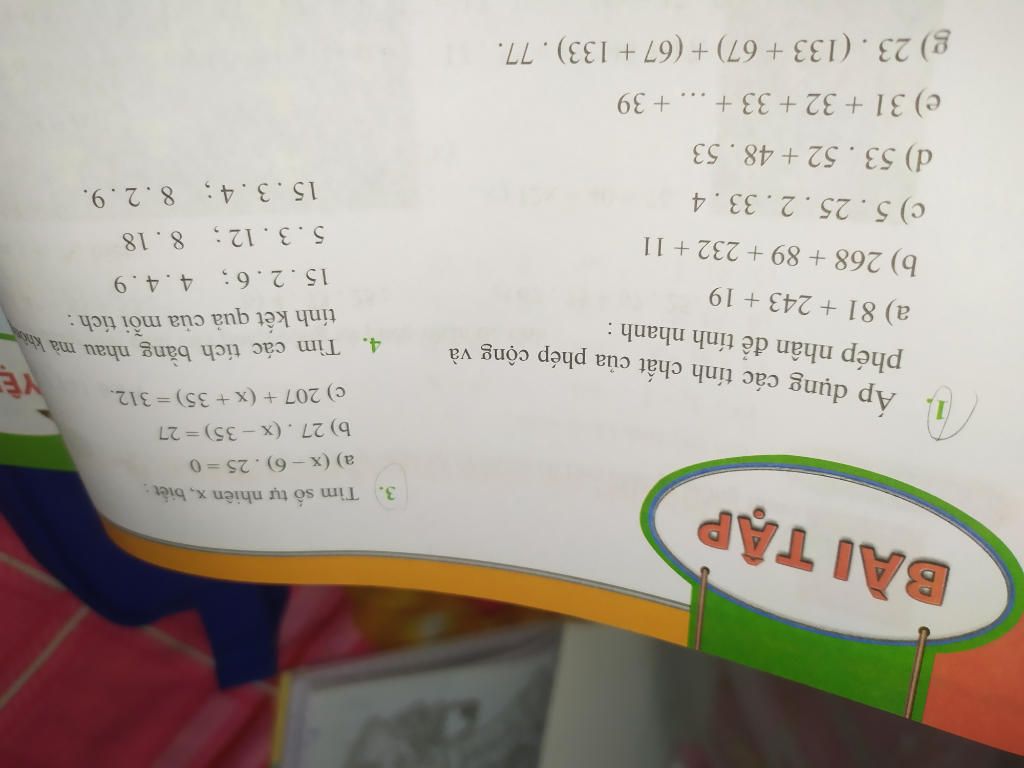 BÀI TẬP
1. Áp dụng các tính chất của phép cộng và
phép nhân để tính nhanh :
a) 81 + 243 + 19
b) 268 + 89 + 232 + 11
c) 5 . 25 . 2 . 33 . 4
d) 53 . 52 + 48 . 53
e) 31 + 32 + 33 + ... + 39
g) 23 . (133 + 67) + (67 + 133) . 77.
3. Tìm số tự nhiên x, biết :
a) (x – 6) . 25 = 0
b) 27 . (x – 35) = 27
c) 207 + (x + 35) = 312.
4. Tìm các tích bằng nhau mà không
tính kết quả của mỗi tích :
15 . 2 . 6 ; 4 . 4 . 9
5 . 3 . 12 ; 8 . 18
15 . 3 . 4 ; 8 . 2 . 9.